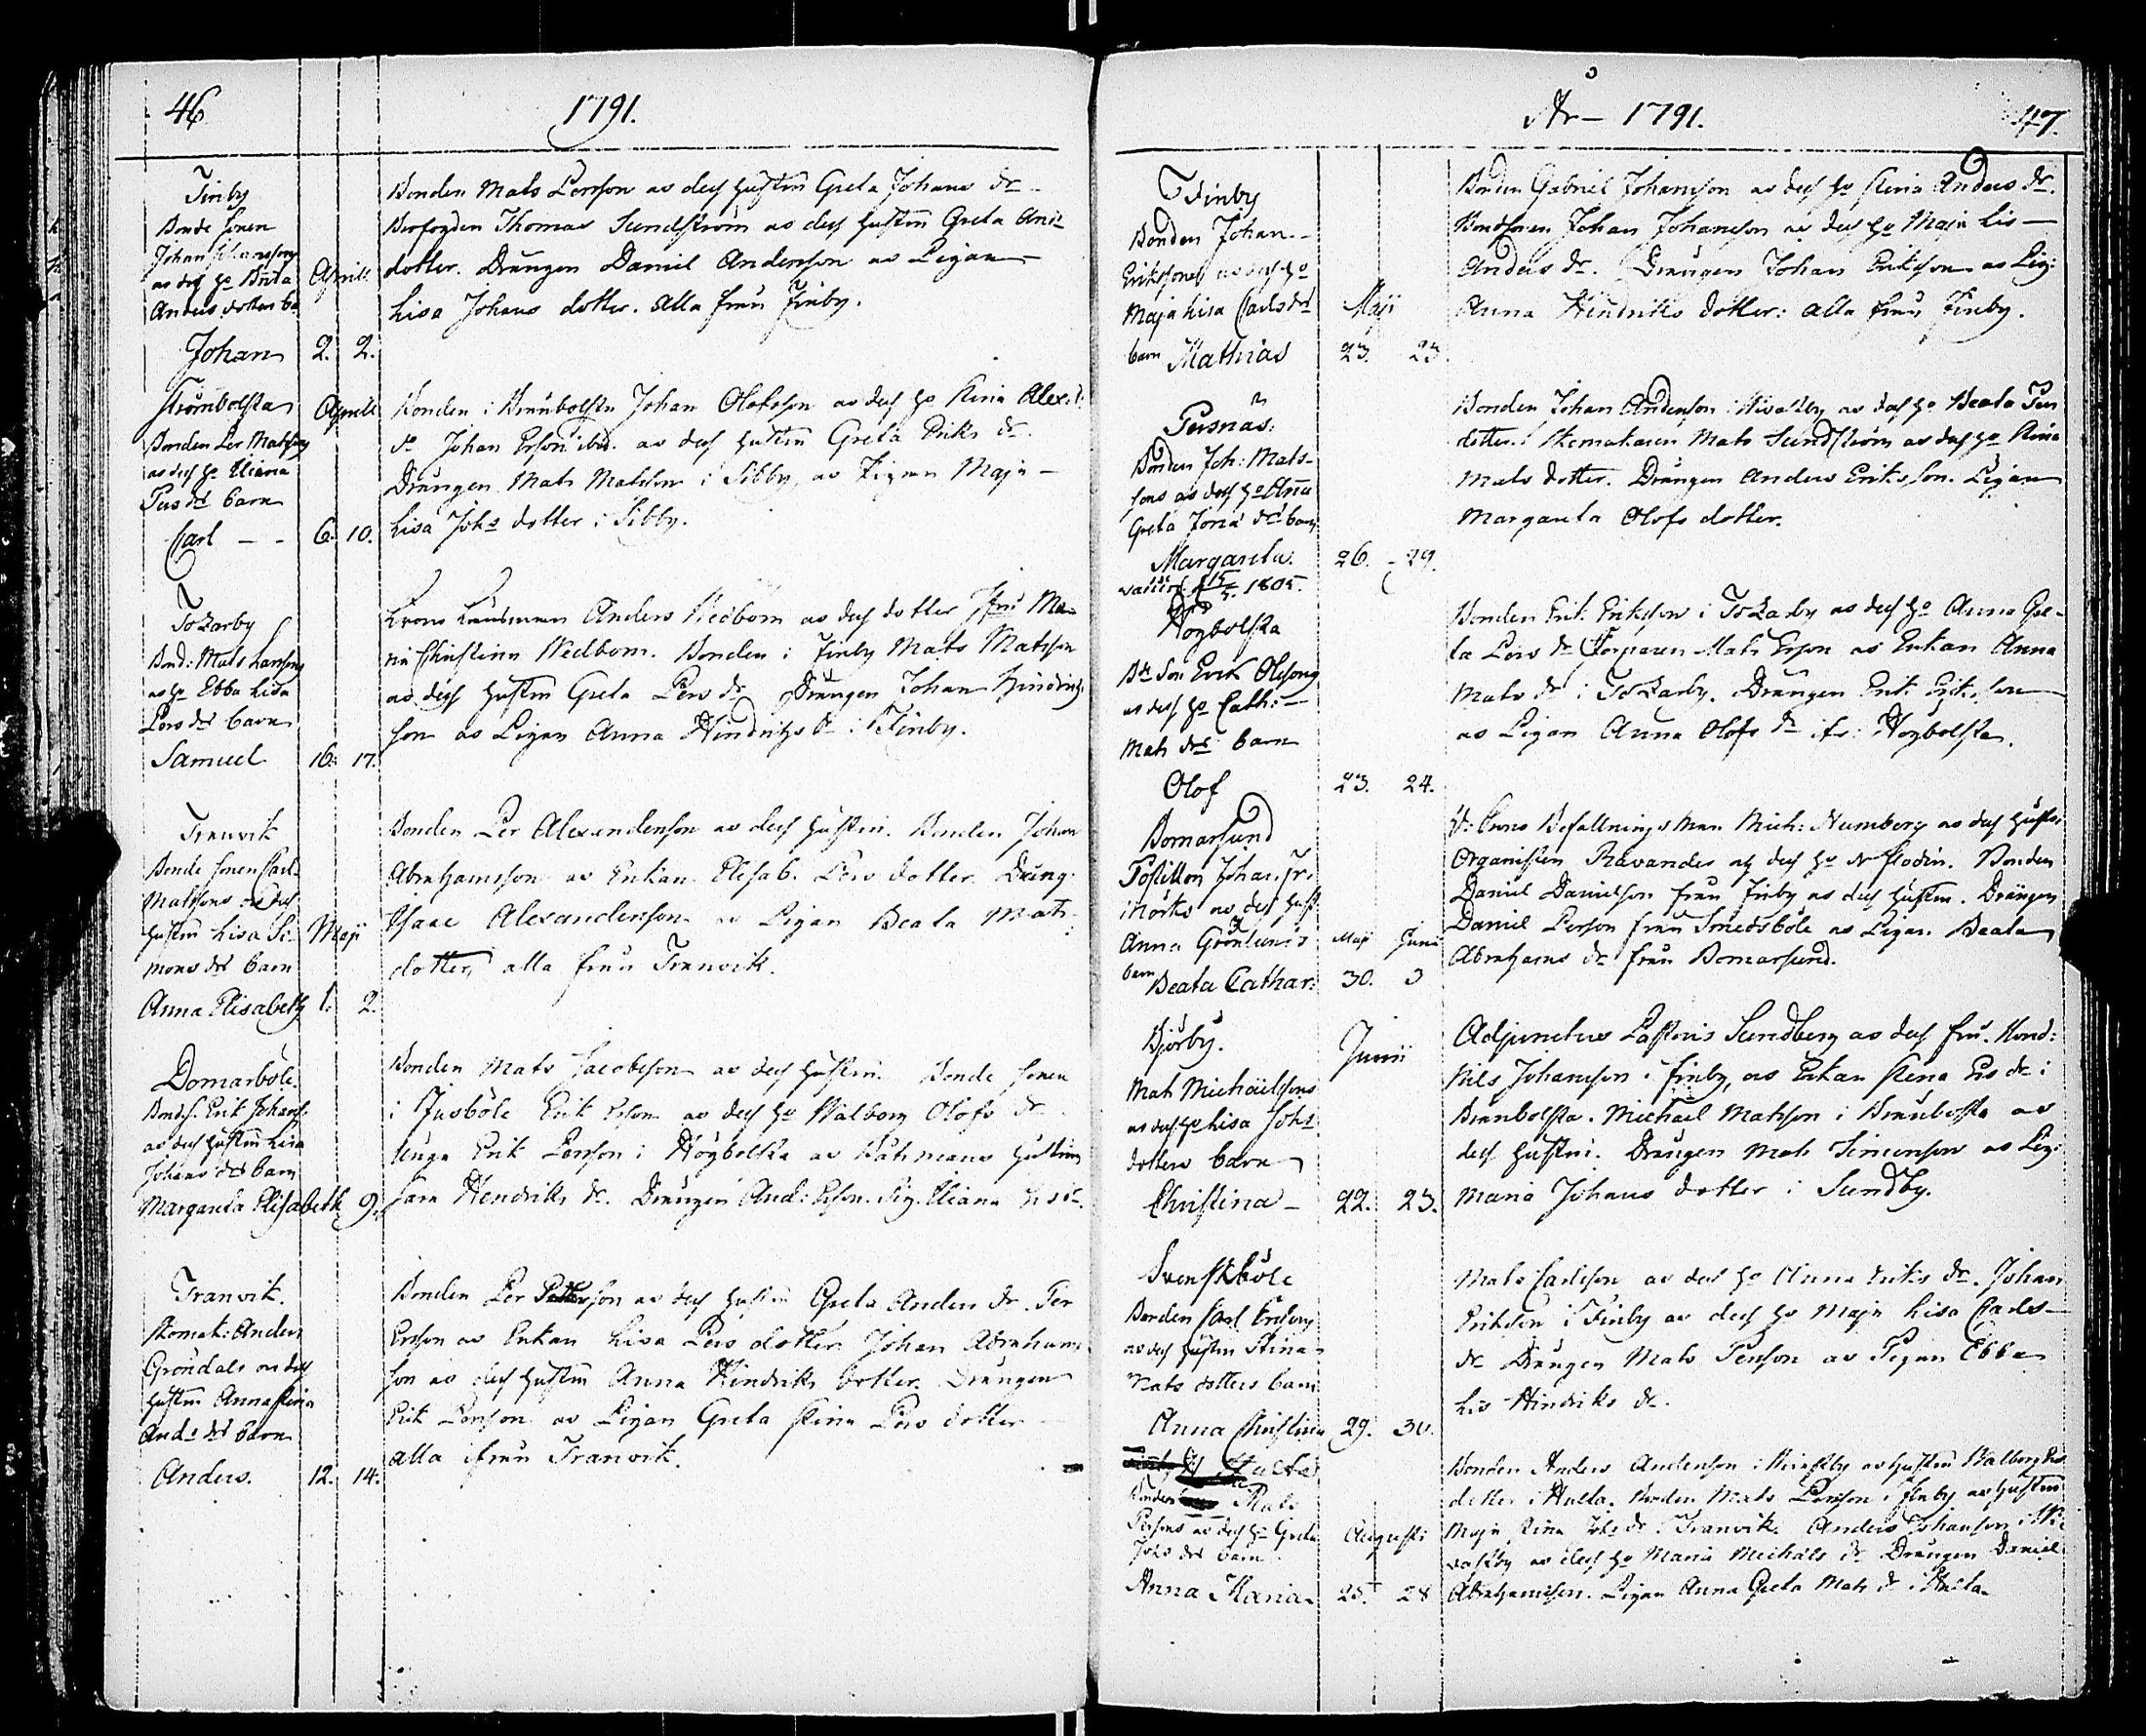 46
1791.
Finby
Bonde sonen
Johan Johanssons
as dess ho Brita
Anders dotters ba
Johan
Aprill
2. 2.
Bonden Mats Persson as dess hustru Greta Johans dr
Thomas Sundström as dess hustru Greta And:
dotter. Drängen Daniel Andersson as Pigan
Lisa Johans dotter. alla från Finby.
Strömbolsta
Bonden Per Matssons
as dess ho Uliana
Pers drs barn
Carl - -
Aprill
6. 10.
Bonden i Brunbolsta Johan Olofsson as dess ho Stina Alex:
do Johan Ersson ibid. as dess hustru Greta Eriks dr.
Drängen Mats Matsson i Sibby, as Pigan Maja
Lisa Johs dotter i Sibby.
Tosarby
Bond: Mats Larssons
as ho Ebba Lisa
Pers drs barn
Samuel
16. 17.
Crono Länsman Anders Wedbom as dess dotter Jfru Ma-
ria Christina Wedbom. Bonden i Finby Mats Matsson
as dess hustru Greta Pers dr Drängen Johan Hindrichs
son as Pigan Anna Hindrichs dr i Finby.
Tranvik
Bonde sonen Carl
Matssons as dess
hustru Lisa Si-
mons drs barn
Anna Elisabeth
Maji
1. 2.
Bonden Per Alexandersson as dess hustru. Bonden Johan
Abrahamsson as Enkan Elisab. Pers dotter. Dräng.
Isaac Alexandersson as Pigan Beata Mats
dotter, alla från Tranvik.
Domarböle.
Bonds. Erik Johans.
as dess hustru Lisa
Johans drs barn
Margareta Elisabeth 9.
Bonden Mats Jacobsson as dess hustru. Bonde sonen
i Jusböle Erik Ersson as dess ho Walborg Olofs dr
Unga Erik Persson i Högbolsta as hustru
Sara Hendriks dr. Drängen And: Ersson. Pig. Uliana
Tranvik.
Skomak: Anders
Gröndals as dess
hustru Anna Stina
Ands drs barn
Anders.
12. 14.
Bonden Per Pettersson as dess hustru Greta Anders dr. Per
Ersson as Enkan Lisa Pers dotter. Johan Abrahams
son as dess hustru Anna Hindriks dotter. Drängen
Erik Persson as Pigan Greta Stina Pers dotter
alla ifrån Tranvik.
År - 1791.
47.
Finby
Bonden Johan
Erikssons as dess ho
Maja Lisa Carls drs
barn Mathias
Maji
23. 25.
Bonden Gabriel Johansson as dess ho Stina Anders dr.
Bondsonen Johan Johansson as dess ho Maja Lis
Anders dr. Drängen Johan Eriksson as Pig:
Anna Hindriks dotter: alla från Finby.
Persnäs:
Bonden Joh: Mats-
sons as dess ho Anna
Greta Jona drs barn
Margareta.
15/5. 1805.
26. - 29.
Bonden Johan Andersson i as dess ho Beata Pers
dotter. Skomakaren Mats Sundström as dess ho Stina
Mats dotter. Drängen Anders Eriksson. Pigan
Margareta Olofs dotter.
Högbolsta
Bde son Erik Olssons
as dess ho Cath:
Mats drs barn
Olof
23. 24.
Bonden Erik Eriksson i Tosarby as dess ho Anna Gre-
ta Pers dr Torparen Mats Ersson as Enkan Anna
Mats dr i Tosarby. Drängen Erik Eriksson
as Pigan Anna Olofs dr ifr: Högbolsta.
Bomarsund
Postillon Johan Fr.
Mörks as dess hust
Anna Grönlunds
barn Beata Cathar:
Maji Junii
30. 3
V: Crono Befallnings Man Mich: Numberg as dess hustru
Organisten Ravander as dess ho Flodin. Bonden
Daniel Danielsson från Finby as dess hustru. Drängen
Daniel Persson från Smedsböle as Pigan Beata
Abrahams dr från Bomarsund.
Björby.
Mats Michaelssons
as dess ho Lisa Johs
dotters barn
Christina -
Junii
22. 23.
Adjunctus Pastoris Sundberg as dess fru. Bond:
Nils Johansson i Finby, as Enkan Stina Ers dr i
Brunbolsta. Michael Matsson i Brunbolsta as
dess hustru. Drängen Mats Simonsson as Pig:
Maria Johans dotter i Sundby.
Svenskböle
Bonden Carl Ersons
as dess hustru Stina
Mats dotters barn
Anna Christina
29. 30.
Mats Carlsson as dess ho Anna Eriks dr. Johan
Eriksson i Finby as dess ho Maja Lisa Carls
dr Drängen Mats Persson as Pigan Ebba
Lis Hindriks dr.
Hulta
Bonden Mats
Perssons as dess ho Greta
Johs drs barn
Anna Maria
Augusti
25. 28
Bonden Anders Andersson i as hustru Walborg Ers
dotter i Hulta. Bonden Mats Persson i Finby as hustru
Maja Stina Johs dr i Tranvik. Anders Johansson i
as dess ho Maria Michels dr Drängen Daniel
Abrahamsson. Pigan Anna Greta Mats dr i Hulta.